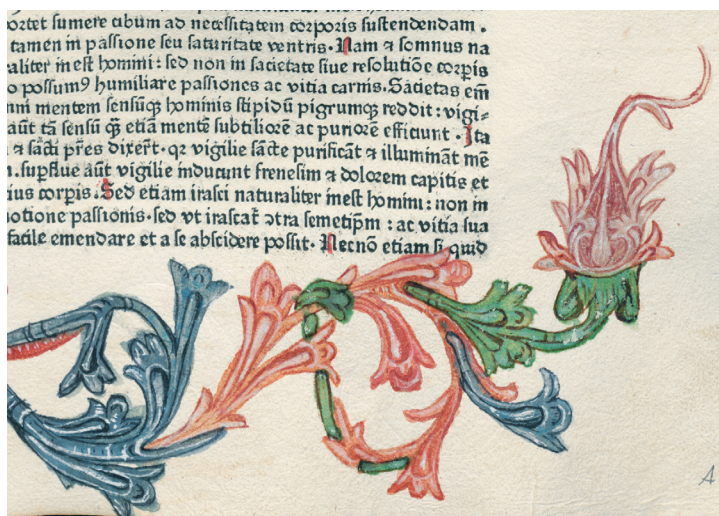 ortet sumere cibum ad necessitatem corporis sustendendam .
tamen in passione seu saturitate ventris · Nam ⁊ somnus na
aliter inest homini : sed non in sacietate siue resolutiōe corpis
o possumꝰ humiliare passiones ac vitia carnis . Sacietas em̄
nni mentem sensūqꝫ hominis stipidū pigrumqꝫ reddit : vigi-
aūt tā sensū qꝫ̄ etiā mentē subtiliorē ac puriorē efficiunt . Ita
⁊ sācti pr̄es dixer̄t · qꝛ vigilie sācte purificāt ⁊ illumināt mē
. supflue aūt vigilie inducunt frenesim ⁊ dolorem capitis et
ius corpis . Sed etiam irasci naturaliter inest homini : non in
otione passionis · sed vt irascat̄ ꝯtra semetip̄m : ac vitia sua
facile emendare et a se abscidere possit · Necnō etiam si quid
A